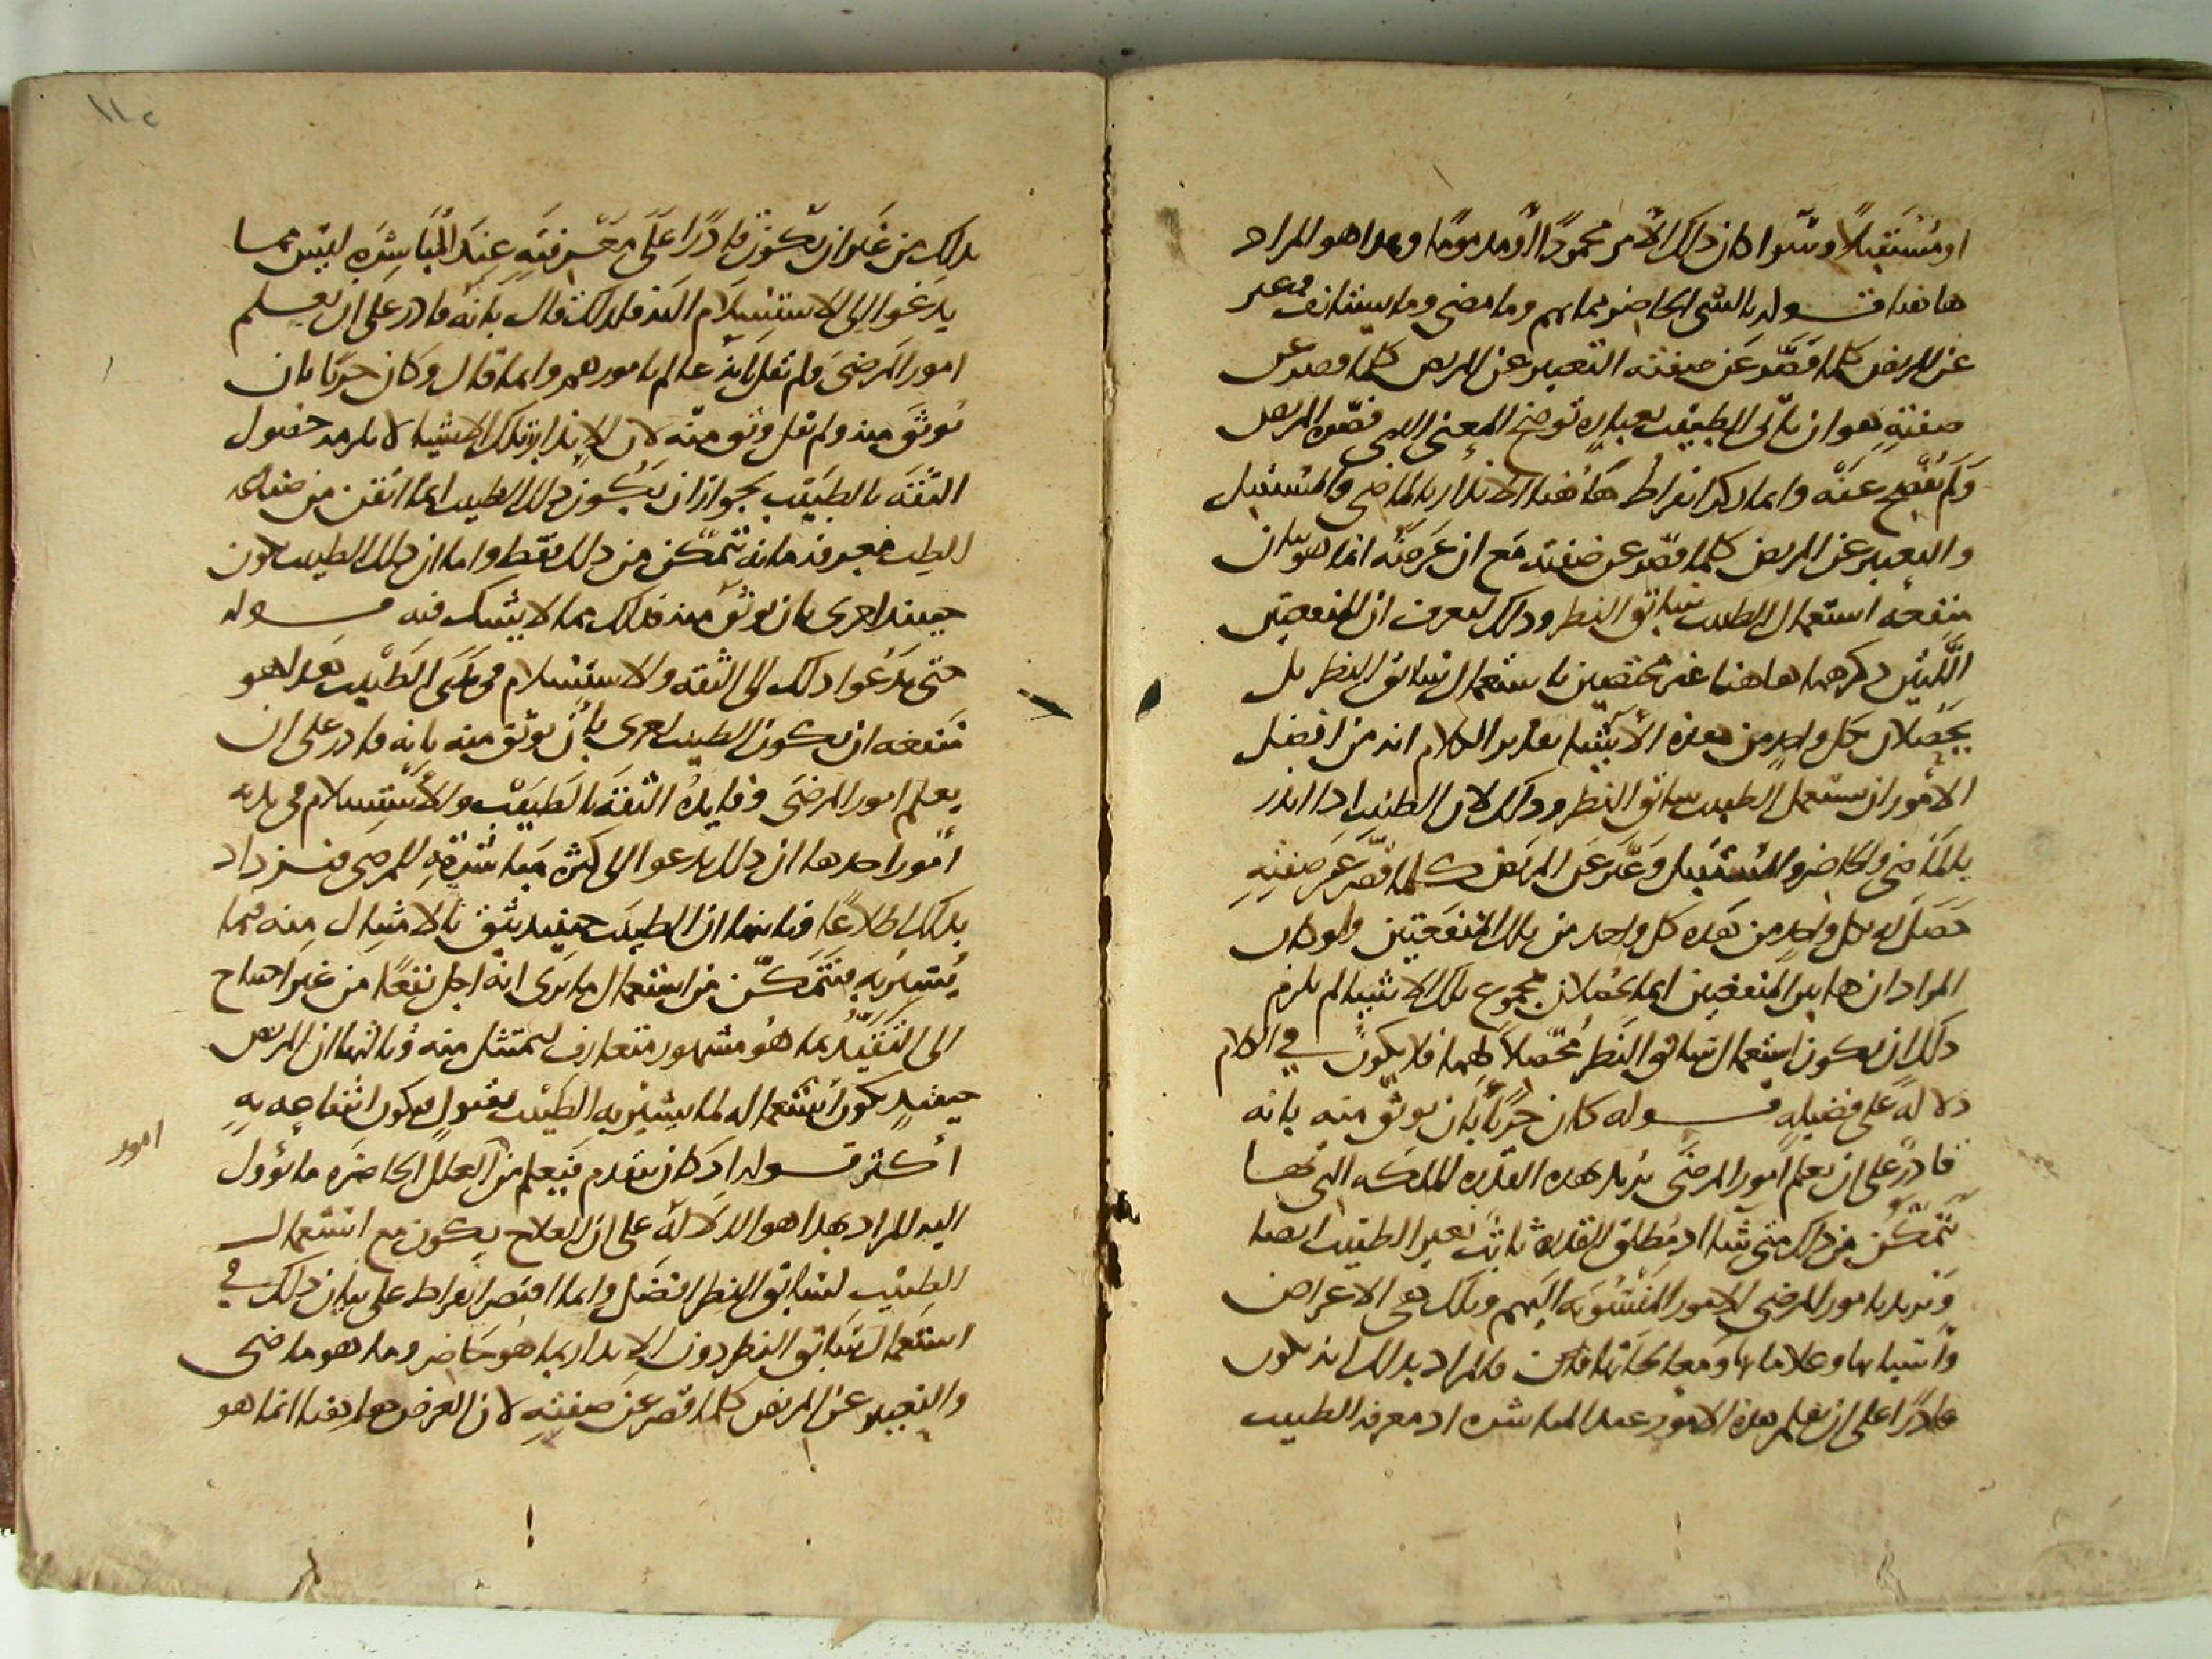 او مستقبلا وسوا كان ذلك الامر محمودا او مذموما وهذا هو المراد
هاهنا قوله بالشي الحاضر مما بهم وما مضى وما يستانف وعبر
عن المريض كلما قصر عن صفته التعبير عن المريض كلما قصر عن
صفته هو ان ياتى الطبيب بعبارة توضح المعنى الذي قصده المريض
ولم يفصح عنه وانما ذكر ابقراط هاهنا الانذار بالماضي والمستقبل
والتعبير عن المريض كلما قصر عن صفته مع ان غرضه انما هو بيان
منفعة استعمال الطبيب سابق النظر وذلك ليعرف ان المنفعتين
اللتين ذكرهما هاهنا غير مختصين باستعمال سابق النظر بل
يحصلان بكل واحد من هذه الاشيا تقدير الكلام انه من افضل
الامور ان يستعمل الطبيب سابق النظر وذلك لان الطبيب اذا انذر
بالماضي والحاضر والمستقبل وعبر عن المريض كلما قصر عن صفته
حصل له بكل واحد من هذه كل واحد من تلك المنفعتين ولو كان
المراد ان هاتين المنفعتين انما يحصلان بمجموع تلك الاشيا لم يلزم
ذلك ان يكون استعمال سابق النظر محصلا لهما فلا يكون في الكلام
دلالة على فضيلة قوله كان حريا بان يوثق منه بانه
قادر على ان يعلم امور المرضى يريد بهذه القدرة الملكه التي بها
يتمكن من ذلك متى شا اذ مطلق القدرة ثابت لغير الطبيب ايضا
ويريد بامور المرضى الامور المنسوبه اليهم وتلك هي الاعراض
واسبابها وعلاماتها ومعالجاتها فان المراد بذلك انه يكون
قادرا على ان يعلم هذه الامور عند المباشرة اذ معرفة الطبيب
١١٢
بذلك من غير ان يكون قادرا على معرفته عند المباشره ليس مما
يدعوا الى الاستسلام اليه فلذلك قال بانه قادر على ان يعلم
امور المرضى ولم يقل بانه عالم بامورهم وانما قال وكان حريا بان
يوثق منه ولم يقل وثق منه لان الانذار بتلك الاشيا لا يلزمه حصول
الثقة بالطبيب بجواز ان يكون ذلك الطبيب انما اتقن من صناعة
الطب معرفة ما به يتمكن من ذلك فقط واما ان ذلك الطبيب يكون
حينئذ احرى بان يوثق منه فذلك مما لا يشك فيه قوله
حتى يدعوا ذلك الى الثقة والاستسلام في يدي الطبيب هذا هو
منفعه ان يكون الطبيب احرى بان يوثق منه بانه قادر على ان
يعلم امور المرضى وفايدة الثقة بالطبيب والاستسلام في يديه
امور احدها ان ذلك يدعوا الى كثرة مباشرته للمرضى فيزداد
بذلك اطلاعا وثانيها ان الطبيب حينئذ يثق بالامتثال منه فيما
يشير به فيتمكن من استعمال ما يرى انه اجل نفعا من غير احتياج
الى التقيد بما هو مشهور متعارف ليمتثل منه وثالثها ان المريض
حينئذ يكون استعماله لما يشير به الطبيب بقبول فيكون انتفاعه به
اكثر قوله اذ كان يتقدم فيعلم من العلل الحاضره ما يؤول
امور
اليه المراد بهذا هو الدلالة على ان العلاج يكون مع استعمال
الطبيب لسابق النظر افضل وانما اقتصر ابقراط على بيان ذلك في
استعمال سابق النظر دون الانذار بما هو حاضر وما هو ماضي
والتعبير عن المريض كلما قصر عن صفته لان الغرض هاهنا انما هو